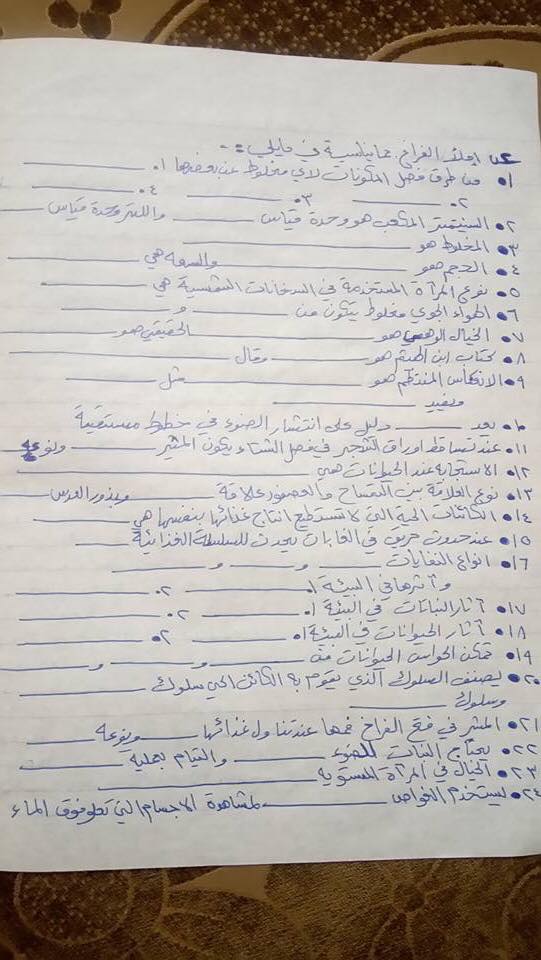 س٢ املأ الفراغ بما يناسبه في مايلي :-
١٠ من طرق فصل المكونات لاي مخلوط عن بعضها ١٠ ________
٢٠ ________ ٣٠ ________ ٤٠ ________
٢٠ السنتمتر المكعب هو وحدة قياس ________ واللتر وحدة قياس ________
٣٠ المخلوط هو ________
٤٠ الحجم هو ________ والسعة هي ________
٥٠ نوع المرآة المستخدمة في السخانات الشمسية هي ________
٦٠ الهواء الجوي مخلوط يتكون من ________ و ________
٧٠ الخيال الوهمي هو ________ الحقيقي هو ________
٨٠ كتاب ابن الهيثم هو ________ وقال ________
٩٠ الانعكاس المنتظم هو ________ مثل ________
ويفيد ________
١٠ يعد ________ دليل على انتشار الضوء في خطوط مستقيمة
١١٠ عند تساقط اوراق الشجر في فصل الشتاء يكون المثير ________ ونوعه
١٢٠ الاستجابة عند الحيوانات هي ________
١٣٠ نوع العلاقة بين التمساح والعصفور علاقة ________ وبذور العدس
١٤٠ الكائنات الحية التي لا تستطيع انتاج غذائها بنفسها هي ________
١٥٠ عند حدوث حريق في الغابات يحدث للسلسلة الغذائية ________
١٦٠ انواع النفايات ________ و ________ و ________
وآثرها في البيئة ١٠ ________ ٢٠ ________
١٧٠ آثار النباتات في البيئة ١٠ ________ ٢٠ ________
١٨٠ آثار الحيوانات في البيئة ١٠ ________ ٢٠ ________
١٩٠ تمكن الحواس الحيوانات من ________ و ________ و ________
٢٠٠ يصنف السلوك الذي يقوم به الكائن الحي سلوك ________
وسلوك ________
٢١٠ المثير في فتح الفراخ فمها عند تناول غذائها ________ ونوعه ________
٢٢٠ يحتاج النبات للضوء ________ والقيام بعملية ________
٢٣٠ الخيال في المرآة المستوية ________
٢٤٠ يستخدم الغواص ________ لمشاهدة الاجسام التي تطوفوق الماء